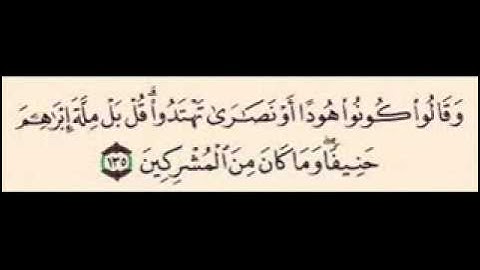 وَقَالُوا۟ كُونُوا۟ هُودًا أَوْ نَصَٰرَىٰ تَهْتَدُوا۟ ۗ قُلْ بَلْ مِلَّةَ إِبْرَٰهِـۧمَ
حَنِيفًا ۖ وَمَا كَانَ مِنَ ٱلْمُشْرِكِينَ ١٣٥